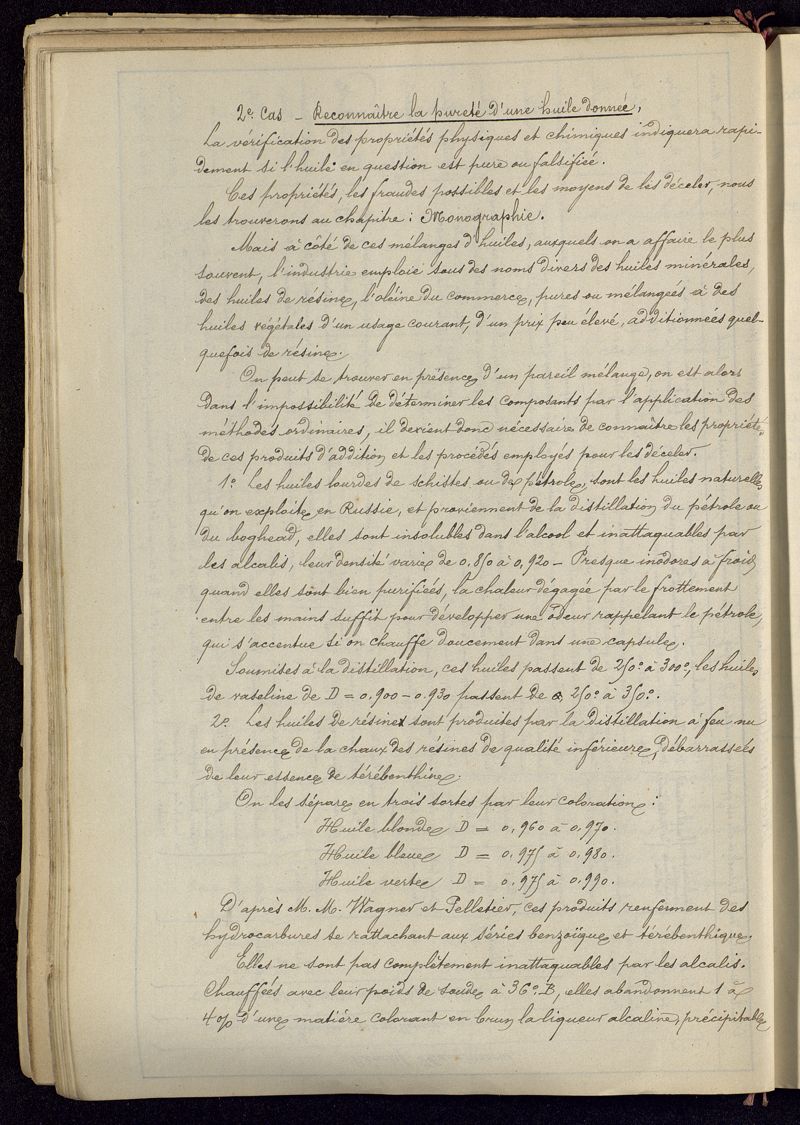 2e. Cas – Reconnaître la pureté d'une huile donnée.
La vérification des propriétés physiques et chimiques indiquera rapi-
dement si l'huile en question est pure ou falsifiée.
Ces propriétés, les fraudes possibles et les moyens de les déceler, nous
les trouverons au chapitre : Monographie.
Mais à côté de ces mélanges d'huiles, auxquels on a affaire le plus
souvent, l'industrie emploie sous des noms divers des huiles minérales,
des huiles de résine, l'oléine du commerce, pures ou mélangées à des
huiles végétales d'un usage courant, d'un prix peu élevé, additionnées quel-
quefois de résine.
On peut se trouver en présence d'un pareil mélange, on est alors
dans l'impossibilité de déterminer les composants par l'application des
méthodes ordinaires, il devient donc nécessaire de connaître les propriétés
de ces produits d'addition et les procédés employés pour les déceler.
1o. Les huiles lourdes de schistes ou de pétrole, sont les huiles naturelles
qu'on exploite en Russie, et proviennent de la distillation du pétrole ou
du boghead, elles sont insolubles dans l'alcool et inattaquables par
les alcalis, leur densité varie de 0,850 à 0,920 – Presque inodores à froid,
quand elles sont bien purifiées, la chaleur dégagée par le frottement
entre les mains suffit pour développer une odeur rappelant le pétrole,
qui s'accentue si on chauffe doucement dans une capsule.
Soumises à la distillation, ces huiles passent de 250° à 300°, les huiles
de vaseline de D = 0,900 – 0,930 passent de 250° à 350°.
2o. Les huiles de résine sont produites par la distillation à feu nu
en présence de la chaux des résines de qualité inférieure, débarrassées
de leur essence de térébenthine.
On les sépare en trois sortes par leur coloration :
Huile blonde D = 0,960 à 0,970.
Huile bleue D = 0,975 à 0,980.
Huile verte D = 0,975 à 0,990.
D'après M. M. Wagner et Pelletier, ces produits renferment des
hydrocarbures se rattachant aux séries benzoïque et térébenthique.
Elles ne sont pas complètement inattaquables par les alcalis.
Chauffées avec leur poids de soude à 36° B, elles abandonnent 1 à
4% d'une matière colorant en brun la liqueur alcaline, précipitable